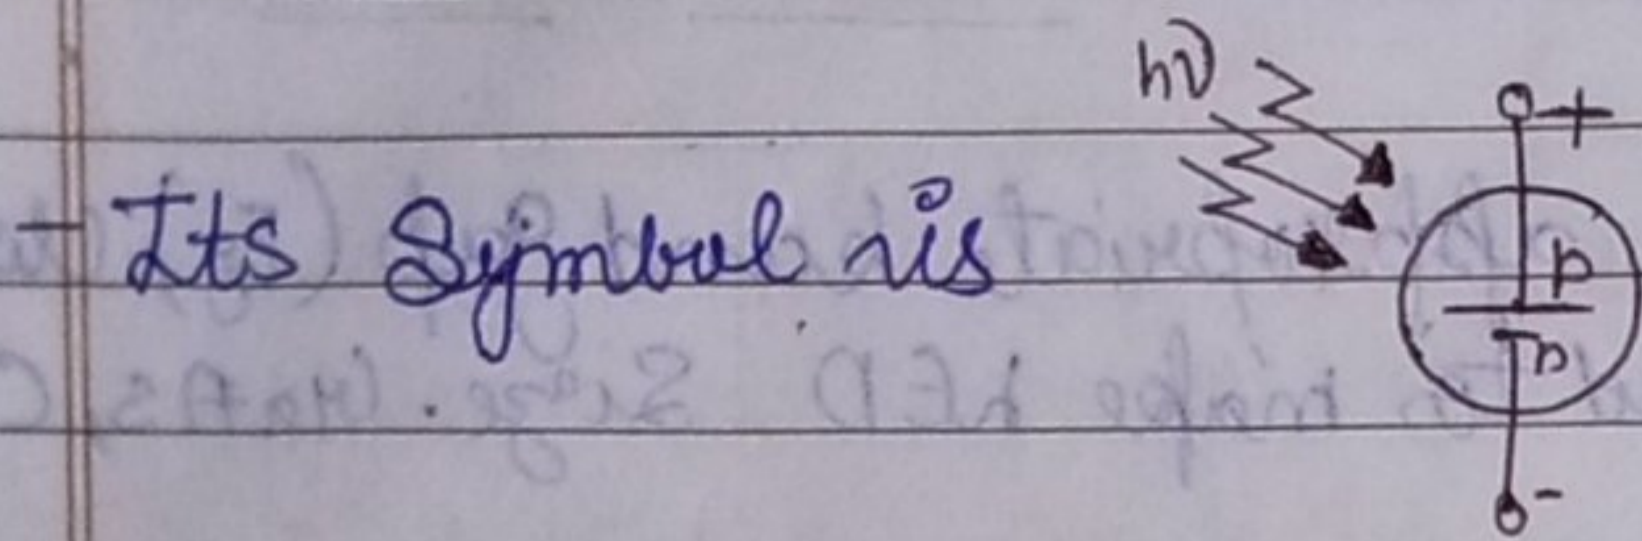 hν
+
- Its Symbol is
p
n
-